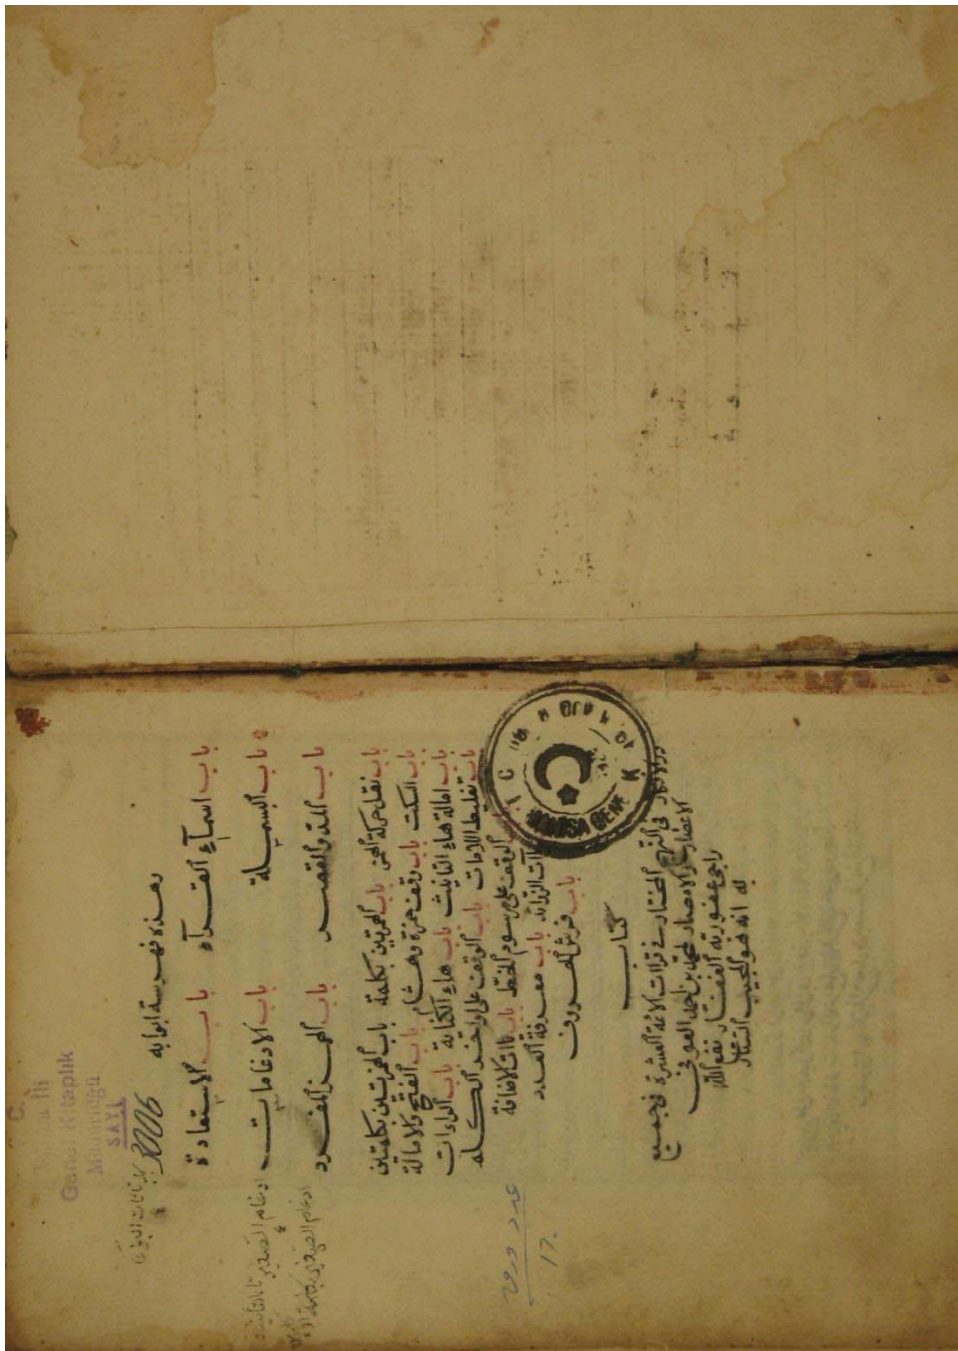 Genel Kitaplık
SAYI
3006
وهذه فهرسة ابوابه
باب اسمآء القرآء باب الاستعاذة
باب البسملة باب الادغامات
باب المد والقصر باب الهمز المفرد
باب نقل حركة الهمز باب الهمزتين بكلمة باب الهمزتين بكلمتين
باب السكت باب وقف حمزة وهشام باب الفتح والامالة
باب امالة هاء التانيث باب هاء الكناية باب الراءات
باب تغليظ اللامات باب الوقف على اواخر الكلم
الوقف على مرسوم الخط باب ياآت الاضافة
ياآت الزوائد باب معرفة العدد
باب فرش الحروف
كتاب
في النهج المختار في قراات الائمة العشرة في جميع
الاعصار والامصار لمحمد بن احمد العوفى
راجى عفو ربه الغفار نفع الله
به انه هو المجيب الستار
عدد ورق
١٦٠
ادغام الصغير
ادغام الصغير
T. C.
MANISA GENEL K